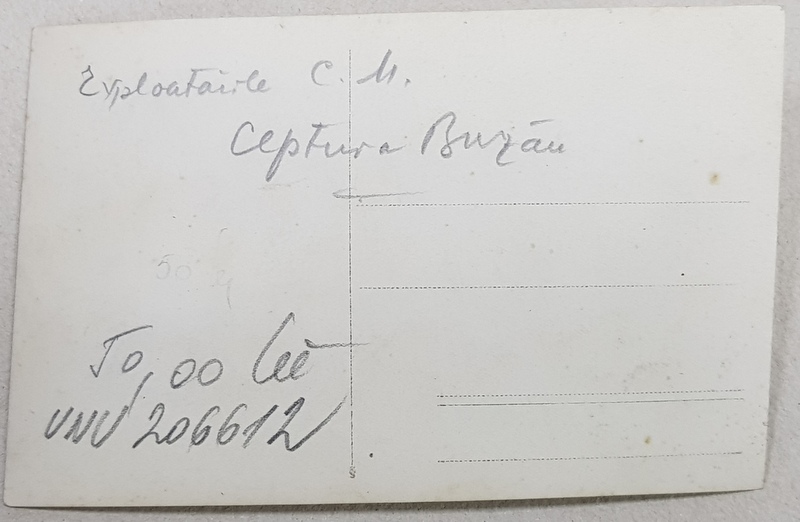 Exploatările C. M.
Ceptura Buzău
50
50,00 lei
VNV 206612